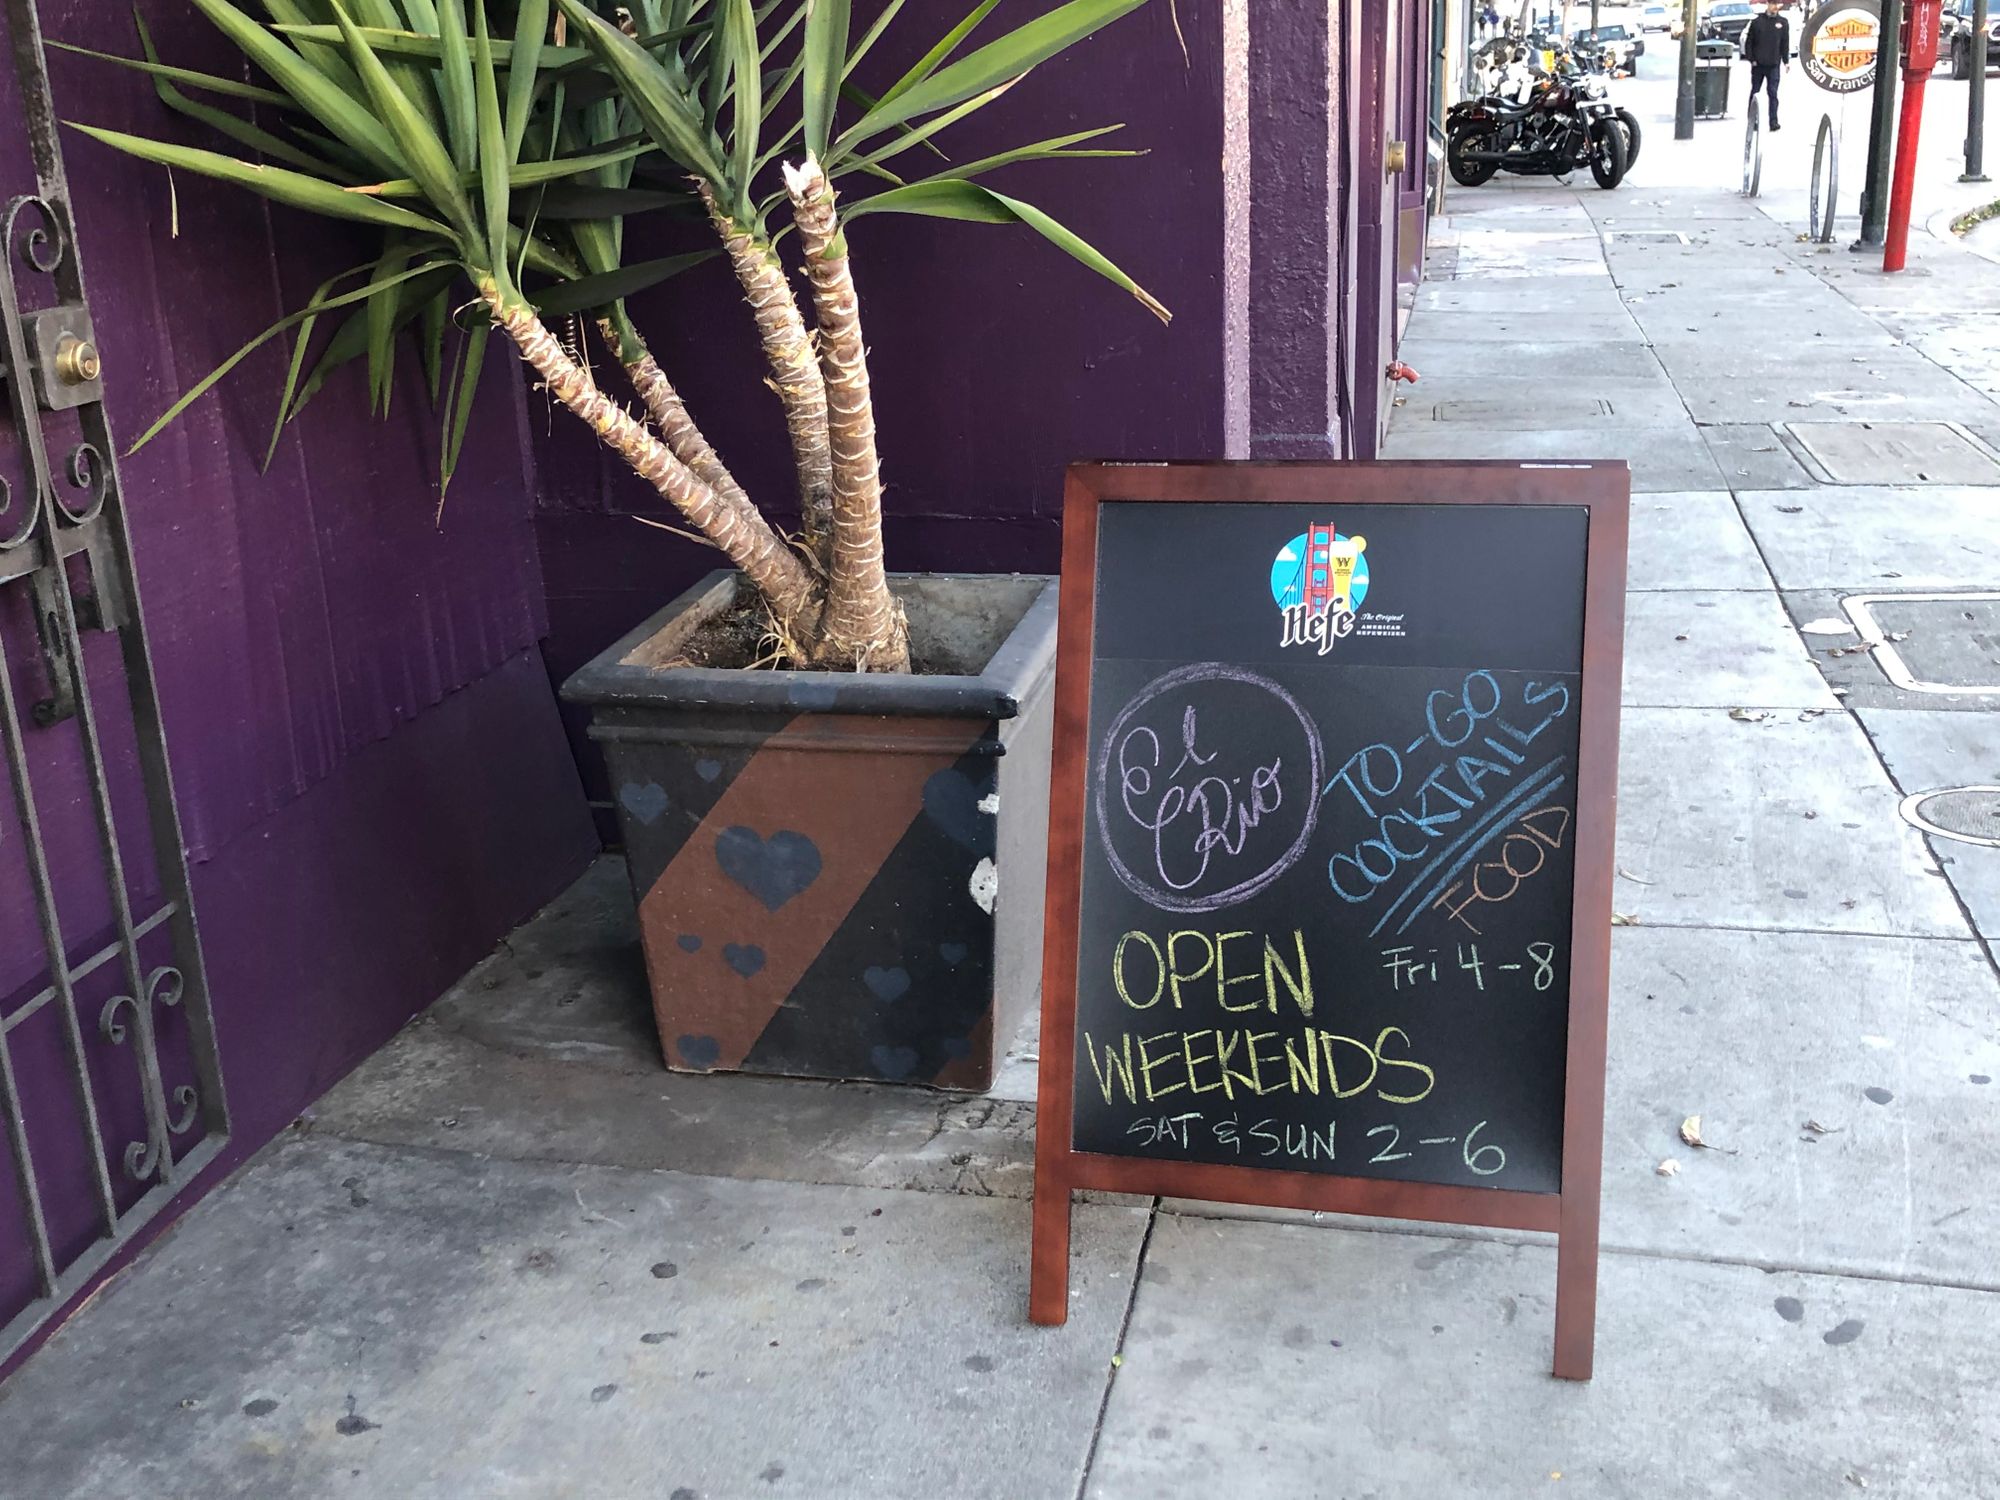 MOTOR
CYCLES
San Francis
W
Hefe
The Original
AMERICAN
HEFEWEIZEN
El
Rio
TO-GO
COCKTAILS
FOOD
OPEN
Fri 4-8
WEEKENDS
SAT & SUN 2-6